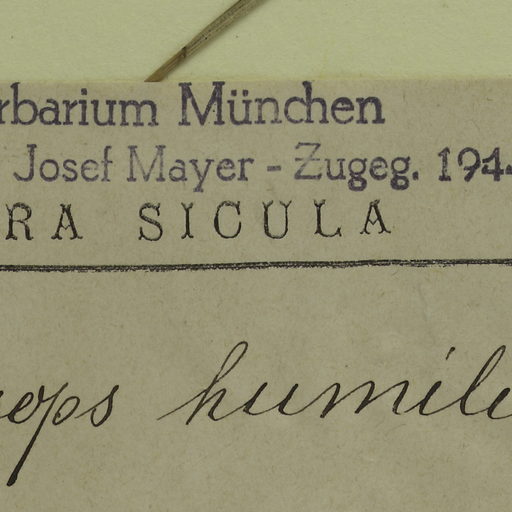 rbarium München
Josef Mayer - Zugeg. 194
RA SICULA
ops humili